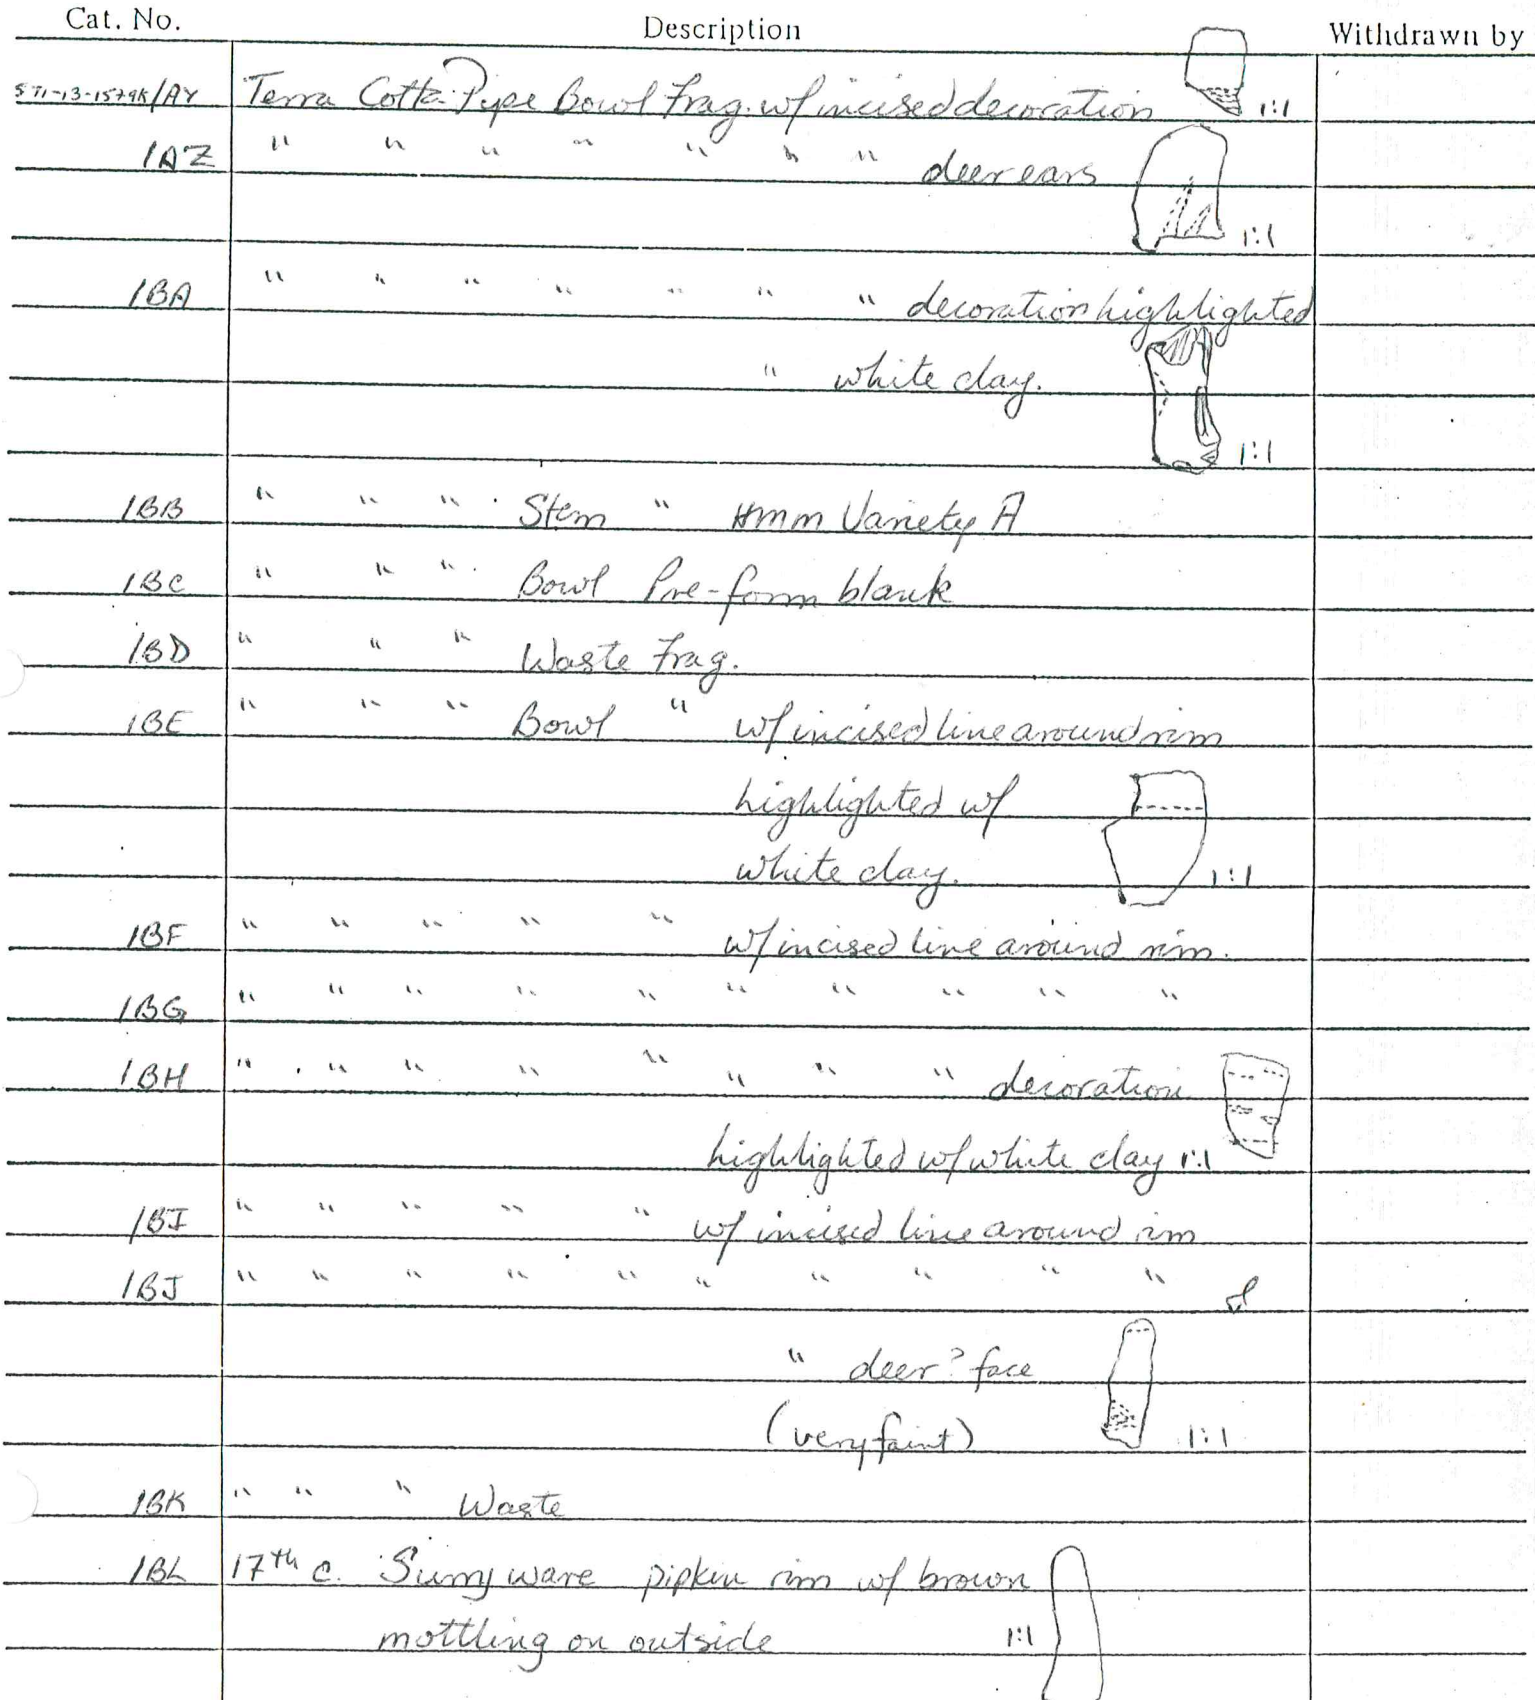 Cat. No. Description Withdrawn by
ST1-13-1579K/AY Terra Cotta Pipe Bowl Frag. w/ incised decoration 1:1
/AZ " " " " " " " deer ears
1:1
/BA " " " " " " " decoration highlighted
" white clay.
1:1
/BB " " " Stem " Hmm Variety A
/BC " " " Bowl Pre-form blank
/BD " " " Waste Frag.
/BE " " " Bowl " w/ incised line around rim
highlighted w/
white clay. 1:1
/BF " " " " " w/ incised line around rim.
/BG " " " " " " " " " "
/BH " " " " " " " " decoration
highlighted w/ white clay 1:1
/BI " " " " " w/ incised line around rim
/BJ " " " " " " " " " "
" deer? face
(very faint) 1:1
/BK " " " Waste
/BL 17th c. Surry ware pipkin rim w/ brown
mottling on outside 1:1